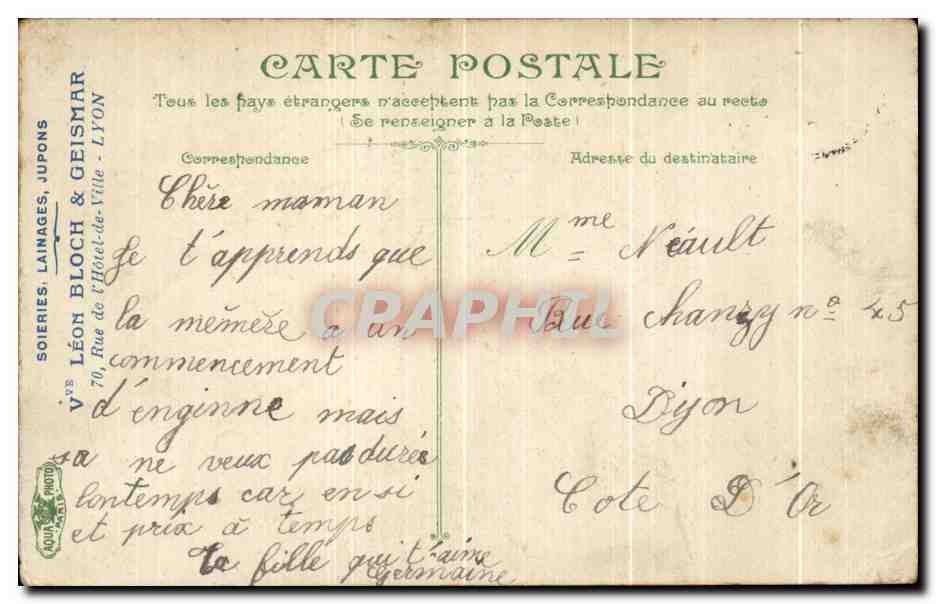 CARTE POSTALE
Tous les pays étrangers n'acceptent pas la Correspondance au recto
(Se renseigner à la Poste)
Correspondance
Adresse du destinataire
SOIERIES, LAINAGES, JUPONS
Vve LÉON BLOCH & GEISMAR
70, Rue de l'Hôtel-de-Ville - LYON
Chère maman
Je t'apprends que
la mémère a un
commencement
d'enginne mais
sa ne veux pas durée
lontemps car en si
et prix à temps
Ta fille qui t'aime
Germaine
Mme Néault
Rue Chanzy no 45
Dijon
Cote D'Or
AQUA PHOTO
PARIS
CRAPHIL